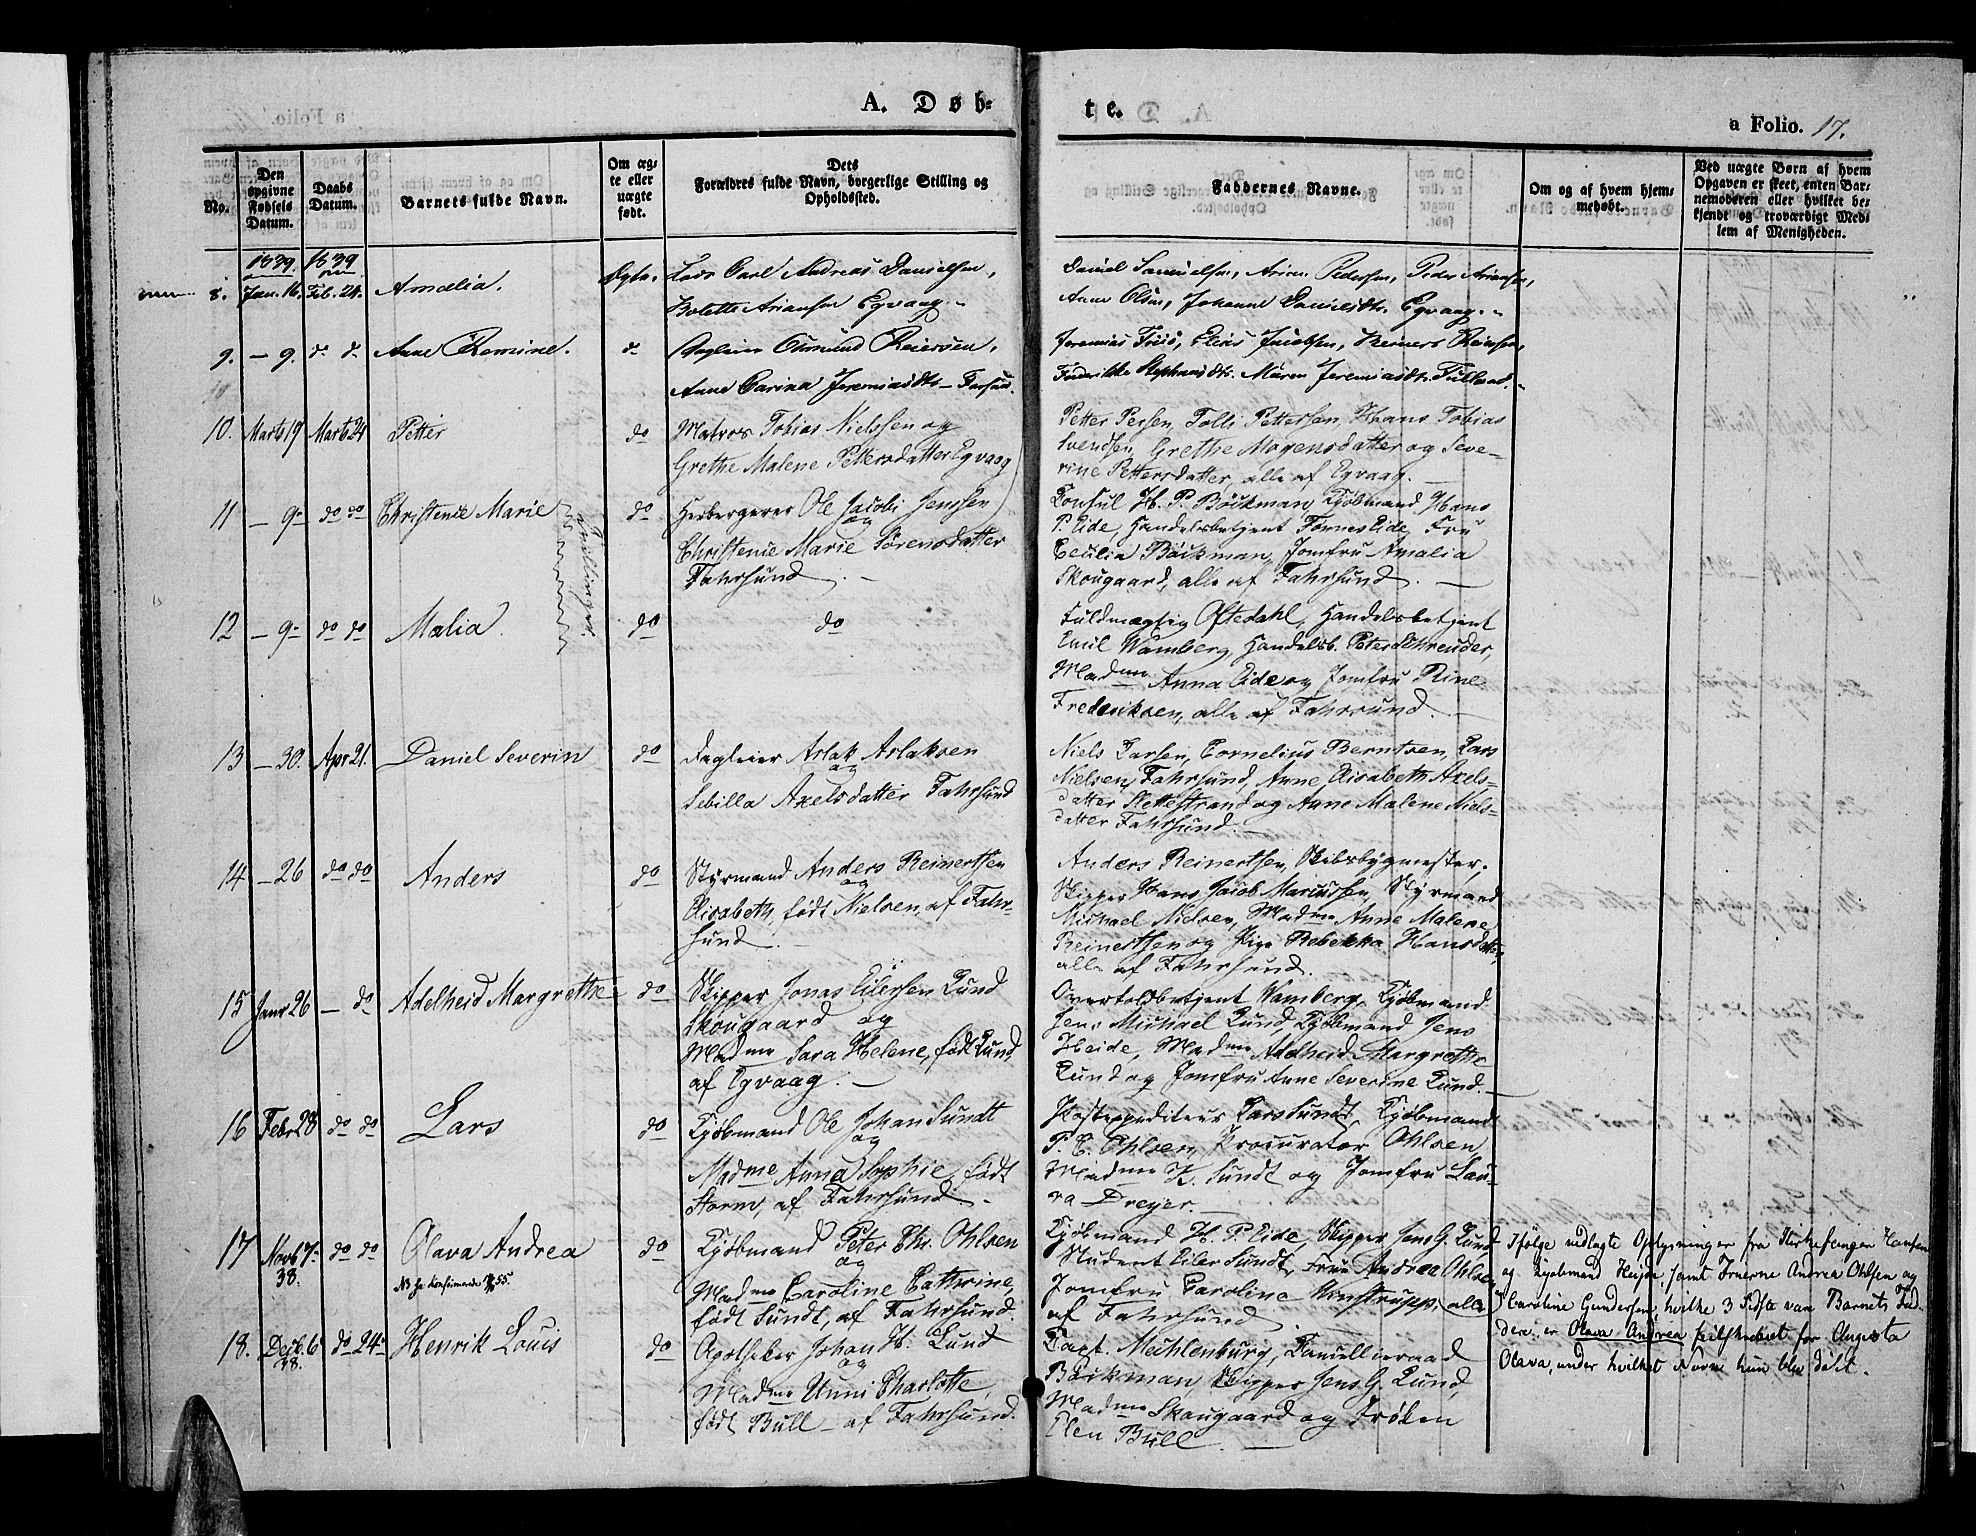 A. Døb=
te.
a Folio. 17.
No.
Den opgivne Fødsels Datum.
Daabs Datum.
Barnets fulde Navn.
Om ægte eller uægte født.
Dets Forældres fulde Navn, borgerlige Stilling og Opholdssted.
Faddernes Navne.
Om og af hvem hjemmedøbt.
Ved uægte Børn af hvem Opgaven er skeet, enten Barnemoderen eller hvilket bekjendt og troværdigt Medlem af Menigheden.
1839. 1839
8. Jan. 16. Feb. 24. Amalia. Ægte.
Lars Carl Andreas Danielsen,
Bolette Ariansen Egvaag.
Daniel Samuelsen, Arian Pedersen, Peder Ariansen,
Anne Olsen, Johanne Danielsdtr. Egvaag.
9. — 9. do do Anne Romine. do
Anne Carina Jeremiasdtr – Farsund.
Jeremias Friis, Elias Jacobsen, Reiners Reiersen,
Fredrikke Stephansdtr. Maren Jeremiasdtr.
10. Marts 19 Marts 24 Petter do
Matros Tobias Nielssen og
Grethe Malene Pettersdatter Egvaag
Petter Persen, Tolli Pettersen, Hans Tobias
Svendsen, Grethe Mogensdatter og Seve-
rine Pettersdatter, alle af Egvaag.
11 — 9de do do Christenie Marie do
Tvillinger.
Herbergerer Ole Jacobi Jenssen
og
Christenie Marie Sørensdatter
Fahrsund.
Konsul H. P. Böckman, Kjöbmand Hans
P. Eide, Handelsbetjent Tønnes Eide, Fru
Cecilia Böckman, Jomfru Amalia
Skougaard, alle af Fahrsund.
12 — 9de do do Malia. do
do
Fuldmægtig Oftedahl, Handelsbetjent
Emil Wamberg, Handelsb. Peter Schreuder,
Madme Anna Eide og Jomfru Rine
Frederiksen, alle af Fahrsund.
13 — 30. Apr 21. Daniel Severin do
Dagleier Aslak Aslaksen
og
Sebilla Axelsdatter Fahrsund
Niels Larsen, Cornelius Berntsen, Lars
Nielsen, Fahrsund, Anne Elisabeth Axels-
datter Slettestrand og Anne Malene Niels-
datter Fahrsund.
14 — 26 do do Anders do
Styrmand Anders Reinertsen
og
Elisabeth, født Nielsen, af Fahr-
sund.
Anders Reinertsen, Skibsbygmester,
Skipper Hans Jacob Mariussen, Styrmand
Michael Nielsen, Madme Anne Malene
Reinertsen og Pige Rebekka Hansdtr,
alle af Fahrsund.
15 Janr 26 — do Adelheid Margrethe do
Skipper Jonas Eilersen Lund
Skougaard og
Madme Sara Helene, født Lund
af Egvaag.
Overtoldbetjent Wamberg, Kjöbmand
Jens Michael Lund, Kjöbmand Jens
Heide, Madme Adelheid Margrethe
Lund og Jomfru Anne Severine Lund.
16 Febr 28 do do Lars do
Kjöbmand Ole Johan Sundt
og
Madme Anna Sophie, født
Storm, af Fahrsund.
Postexpediteur Lars Sundt, Kjöbmand
P. C. Ohlsen, Procurator Ohlsen,
Madme K. Sundt og Jomfru Lau-
ra Dreyer.
17 Novb 7de 38. do do Olava Andrea do
Kjöbmand Peter Chr. Ohlsen
og
Madme Caroline Cathrine,
født Sundt, af Fahrsund.
Kjöbmand H. P. Eide, Skipper Jens G. Lund,
Student Eiler Sundt, Frue Andrea Ohlsen,
Jomfru Carolina, alle
af Fahrsund.
Ifölge vedlagte Oplysninger fra Kirkesanger Hansen
og Kjøbmand Hejde, samt Fruerne Andrea Ohlsen og
Caroline Gundersen, hvilke 3 Sidste vare Barnets Fad-
dere, er Olava Andrea feilskrevet for Augusta
Olava, under hvilket Navn hun blev döbt.
18. Decb. 6 38. do 24de Henrik Louis do
Apotheker Johan H. Lund
og
Madme Unni Charlotte,
født Bull – af Fahrsund.
Capt. Mechlenburg, Kancelliraad
Böckman, Skipper Jens G. Lund,
Madme Skougaard og Frøken
Elen Bull.